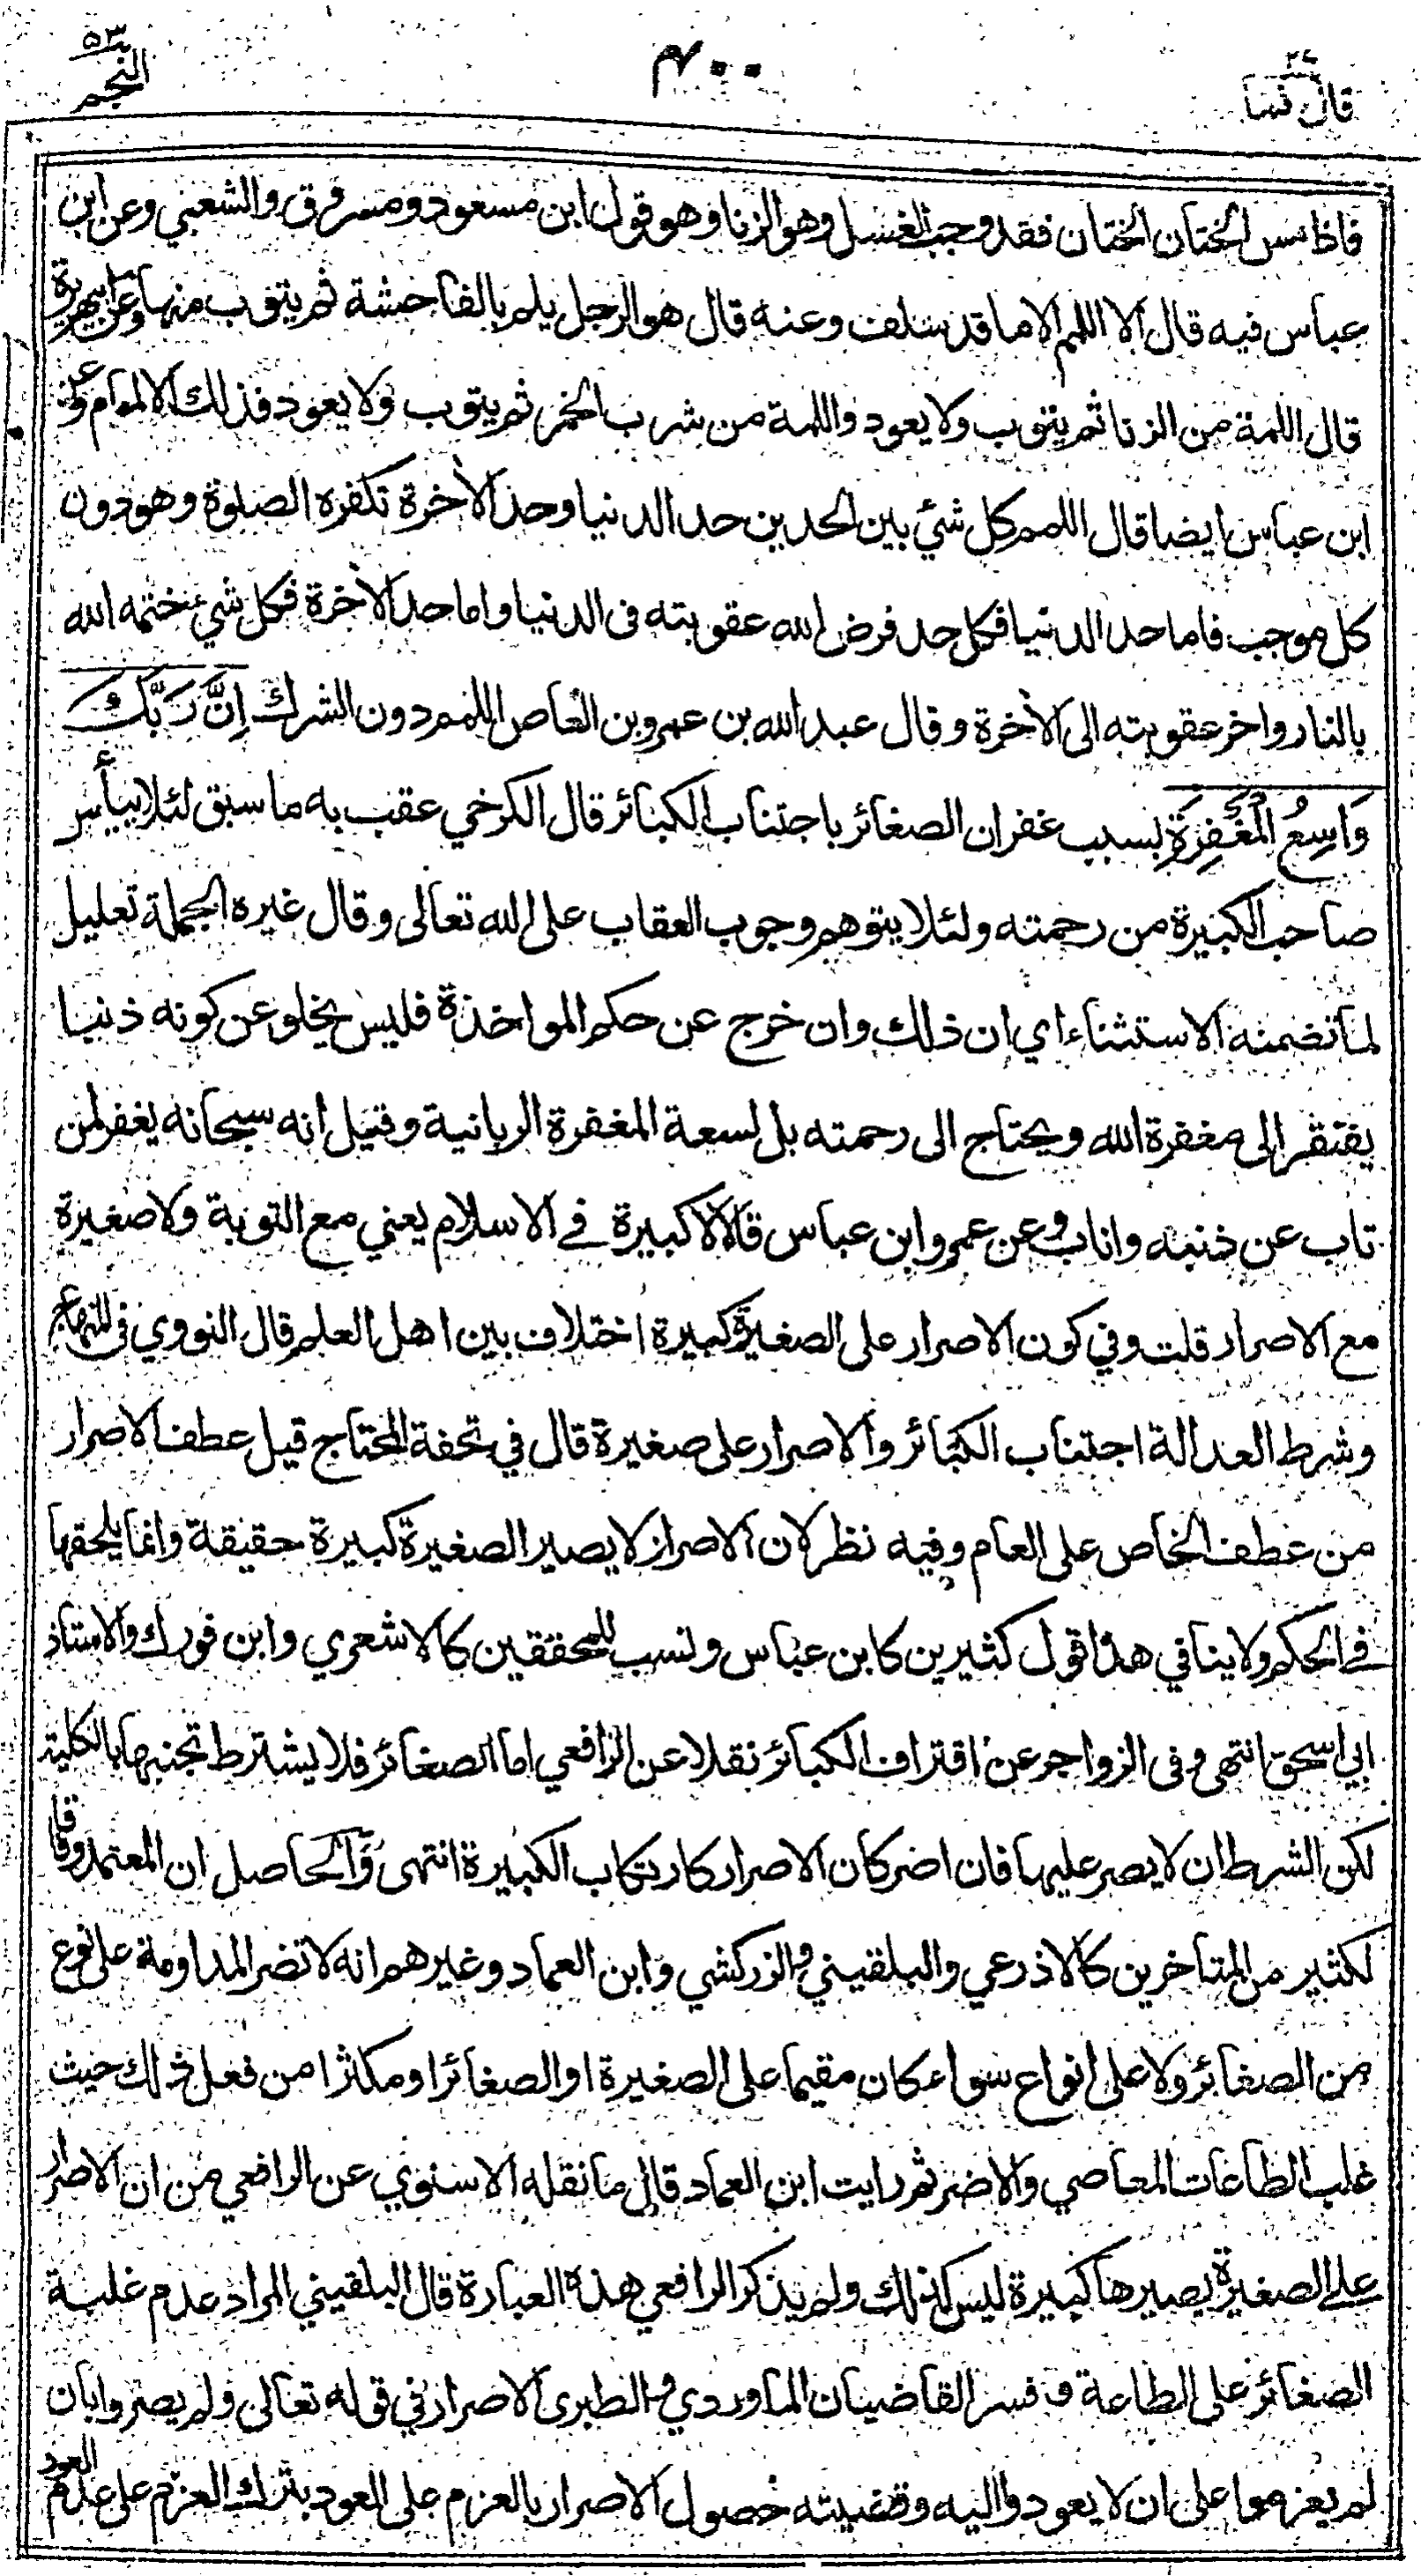 قال فما ٢٧
٤٠٠
النجم ٥٣
فاذا مس الختان الختان فقد وجب الغسل وهو الزنا وهو قول ابن مسعود ومسروق والشعبي وعن ابن
عباس فيه قال الا اللمم الا ما قد سلف وعنه قال هو الرجل يلم بالفاحشة ثم يتوب منها وعن ابي هريرة
قال اللمة من الزنا ثم يتوب ولا يعود واللمة من شرب الخمر ثم يتوب ولا يعود فذلك الالمام وعن
ابن عباس ايضا قال اللمم كل شئ بين الحدين حد الدنيا وحد الأخرة تكفره الصلوة وهو دون
كل موجب فاما حد الدنيا فكل حد فرض الله عقوبته فى الدنيا واما حد الأخرة فكل شيء ختمه الله
بالنار واخر عقوبته الى الأخرة وقال عبد الله بن عمرو بن العاص اللمم دون الشرك اِنَّ رَبَّكَ
وَاسِعُ الْمَغْفِرَةِ بسبب غفران الصغائر باجتناب الكبائر قال الكرخي عقب به ما سبق لئلا ييأس
صاحب الكبيرة من رحمته ولئلا يتوهم وجوب العقاب على الله تعالى وقال غيره الجملة تعليل
لما تضمنه الاستثناء اي ان ذلك وان خرج عن حكم المواخذة فليس يخلو عن كونه ذنبا
يفتقر الى مغفرة الله ويحتاج الى رحمته بل لسعة المغفرة الربانية وقيل انه سبحانه يغفر لمن
تاب عن ذنبه واناب وعن عمر وابن عباس قالا لا كبيرة في الاسلام يعني مع التوبة ولا صغيرة
مع الاصرار قلت وفي كون الاصرار على الصغيرة كبيرة اختلاف بين اهل العلم قال النووي فى المنهاج
وشرط العدالة اجتناب الكبائر والاصرار على صغيرة قال في تحفة المحتاج قيل عطف الاصرار
من عطف الخاص على العام وفيه نظر لان الاصرار لا يصير الصغيرة كبيرة حقيقة وانما يلحقها
في الحكم ولا ينافي هذا قول كثيرين كابن عباس ونسب للمحققين كالاشعري وابن فورك والاستاذ
ابي اسحق انتهى وفى الزواجر عن اقتراف الكبائر نقلا عن الرافعي اما الصغائر فلا يشترط تجنبها بالكلية
لكن الشرط ان لا يصر عليها فان اصر كان الاصرار كارتكاب الكبيرة انتهى وَالحاصل ان المعتمد وفاقا
لكثير من المتاخرين كالاذرعي والبلقيني والزركشي وابن العماد وغيرهم انه لا تضر المداومة على نوع
من الصغائر ولا على انواع سواء كان مقيما على الصغيرة او الصغائر او مكثرا من فعل ذلك حيث
غلب الطاعات المعاصي والا ضر ثم رايت ابن العماد قال ما نقله الاسنوي عن الرافعي من ان الاصرار
على الصغيرة يصيرها كبيرة ليس كذلك ولم يذكر الرافعي هذه العبارة قال البلقيني المراد عدم غلبة
الصغائر على الطاعة وفسر القاضيان الماوردي والطبرى الاصرار في قوله تعالى ولم يصروا بان
لم يعزموا على ان لا يعودوا اليه وقضيته حصول الاصرار بالعزم على العود بترك العزم على عدم العود